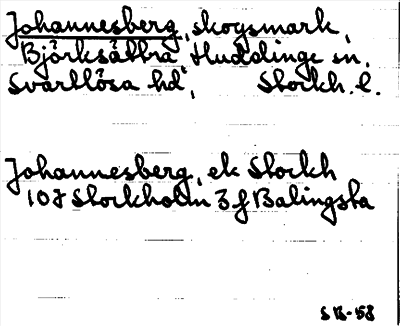 Johannesberg, skogsmark,
Björksättra Huddinge sn.
Svartlösa hd, Stockh. l.
Johannesberg, ek Stockh
10J Stockholm 3 f Balingsta
SB-58